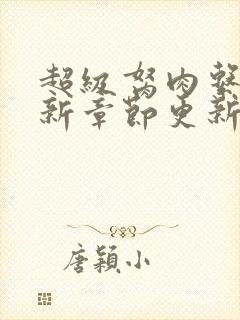 超級胬肉
新章節更新
唐穎小